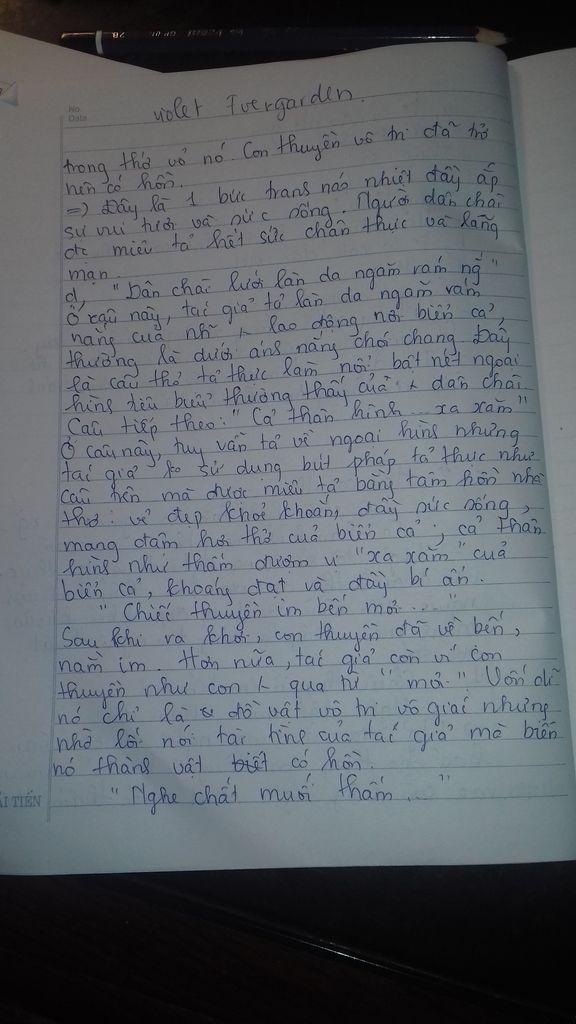 2B
No.
Date
violet Evergarden.
trong thớ vỏ nó. Con thuyền vô tri đã trở
nên có hồn.
=) Đây là 1 bức tranh náo nhiệt đầy ắp
sự vui tươi và sức sống. Người dân chài
đc miêu tả hết sức chân thực và lãng
mạn.
d, "Dân chài lưới làn da ngăm rám ng"
Ở câu này, tác giả tả làn da ngăm rám
nắng của nh~ λ lao động nơi biển cả,
thường là dưới ánh nắng chói chang. Đây
là câu thơ tả thực làm nổi bật nét ngoại
hình tiêu biểu thường thấy của λ dân chài.
Câu tiếp theo: "Cả thân hình... xa xăm"
Ở câu này, tuy vẫn tả về ngoại hình nhưng
tác giả ko sử dụng bút pháp tả thực như
câu trên mà được miêu tả bằng tâm hồn nhà
thơ: vẻ đẹp khoẻ khoắn, đầy sức sống,
mang đậm hơi thở của biển cả; cả thân
hình như thấm đượm vị "xa xăm" của
biển cả, khoáng đạt và đầy bí ẩn.
"Chiếc thuyền im bến mỏi..."
Sau khi ra khơi, con thuyền đã về bến,
nằm im. Hơn nữa, tác giả còn ví con
thuyền như con λ qua từ "mỏi." Vốn dĩ
nó chỉ là đồ vật vô tri vô giác nhưng
nhờ lối nói tài tình của tác giả mà biến
nó thành vật có hồn.
"Nghe chất muối thấm..."
ẢI TIẾN